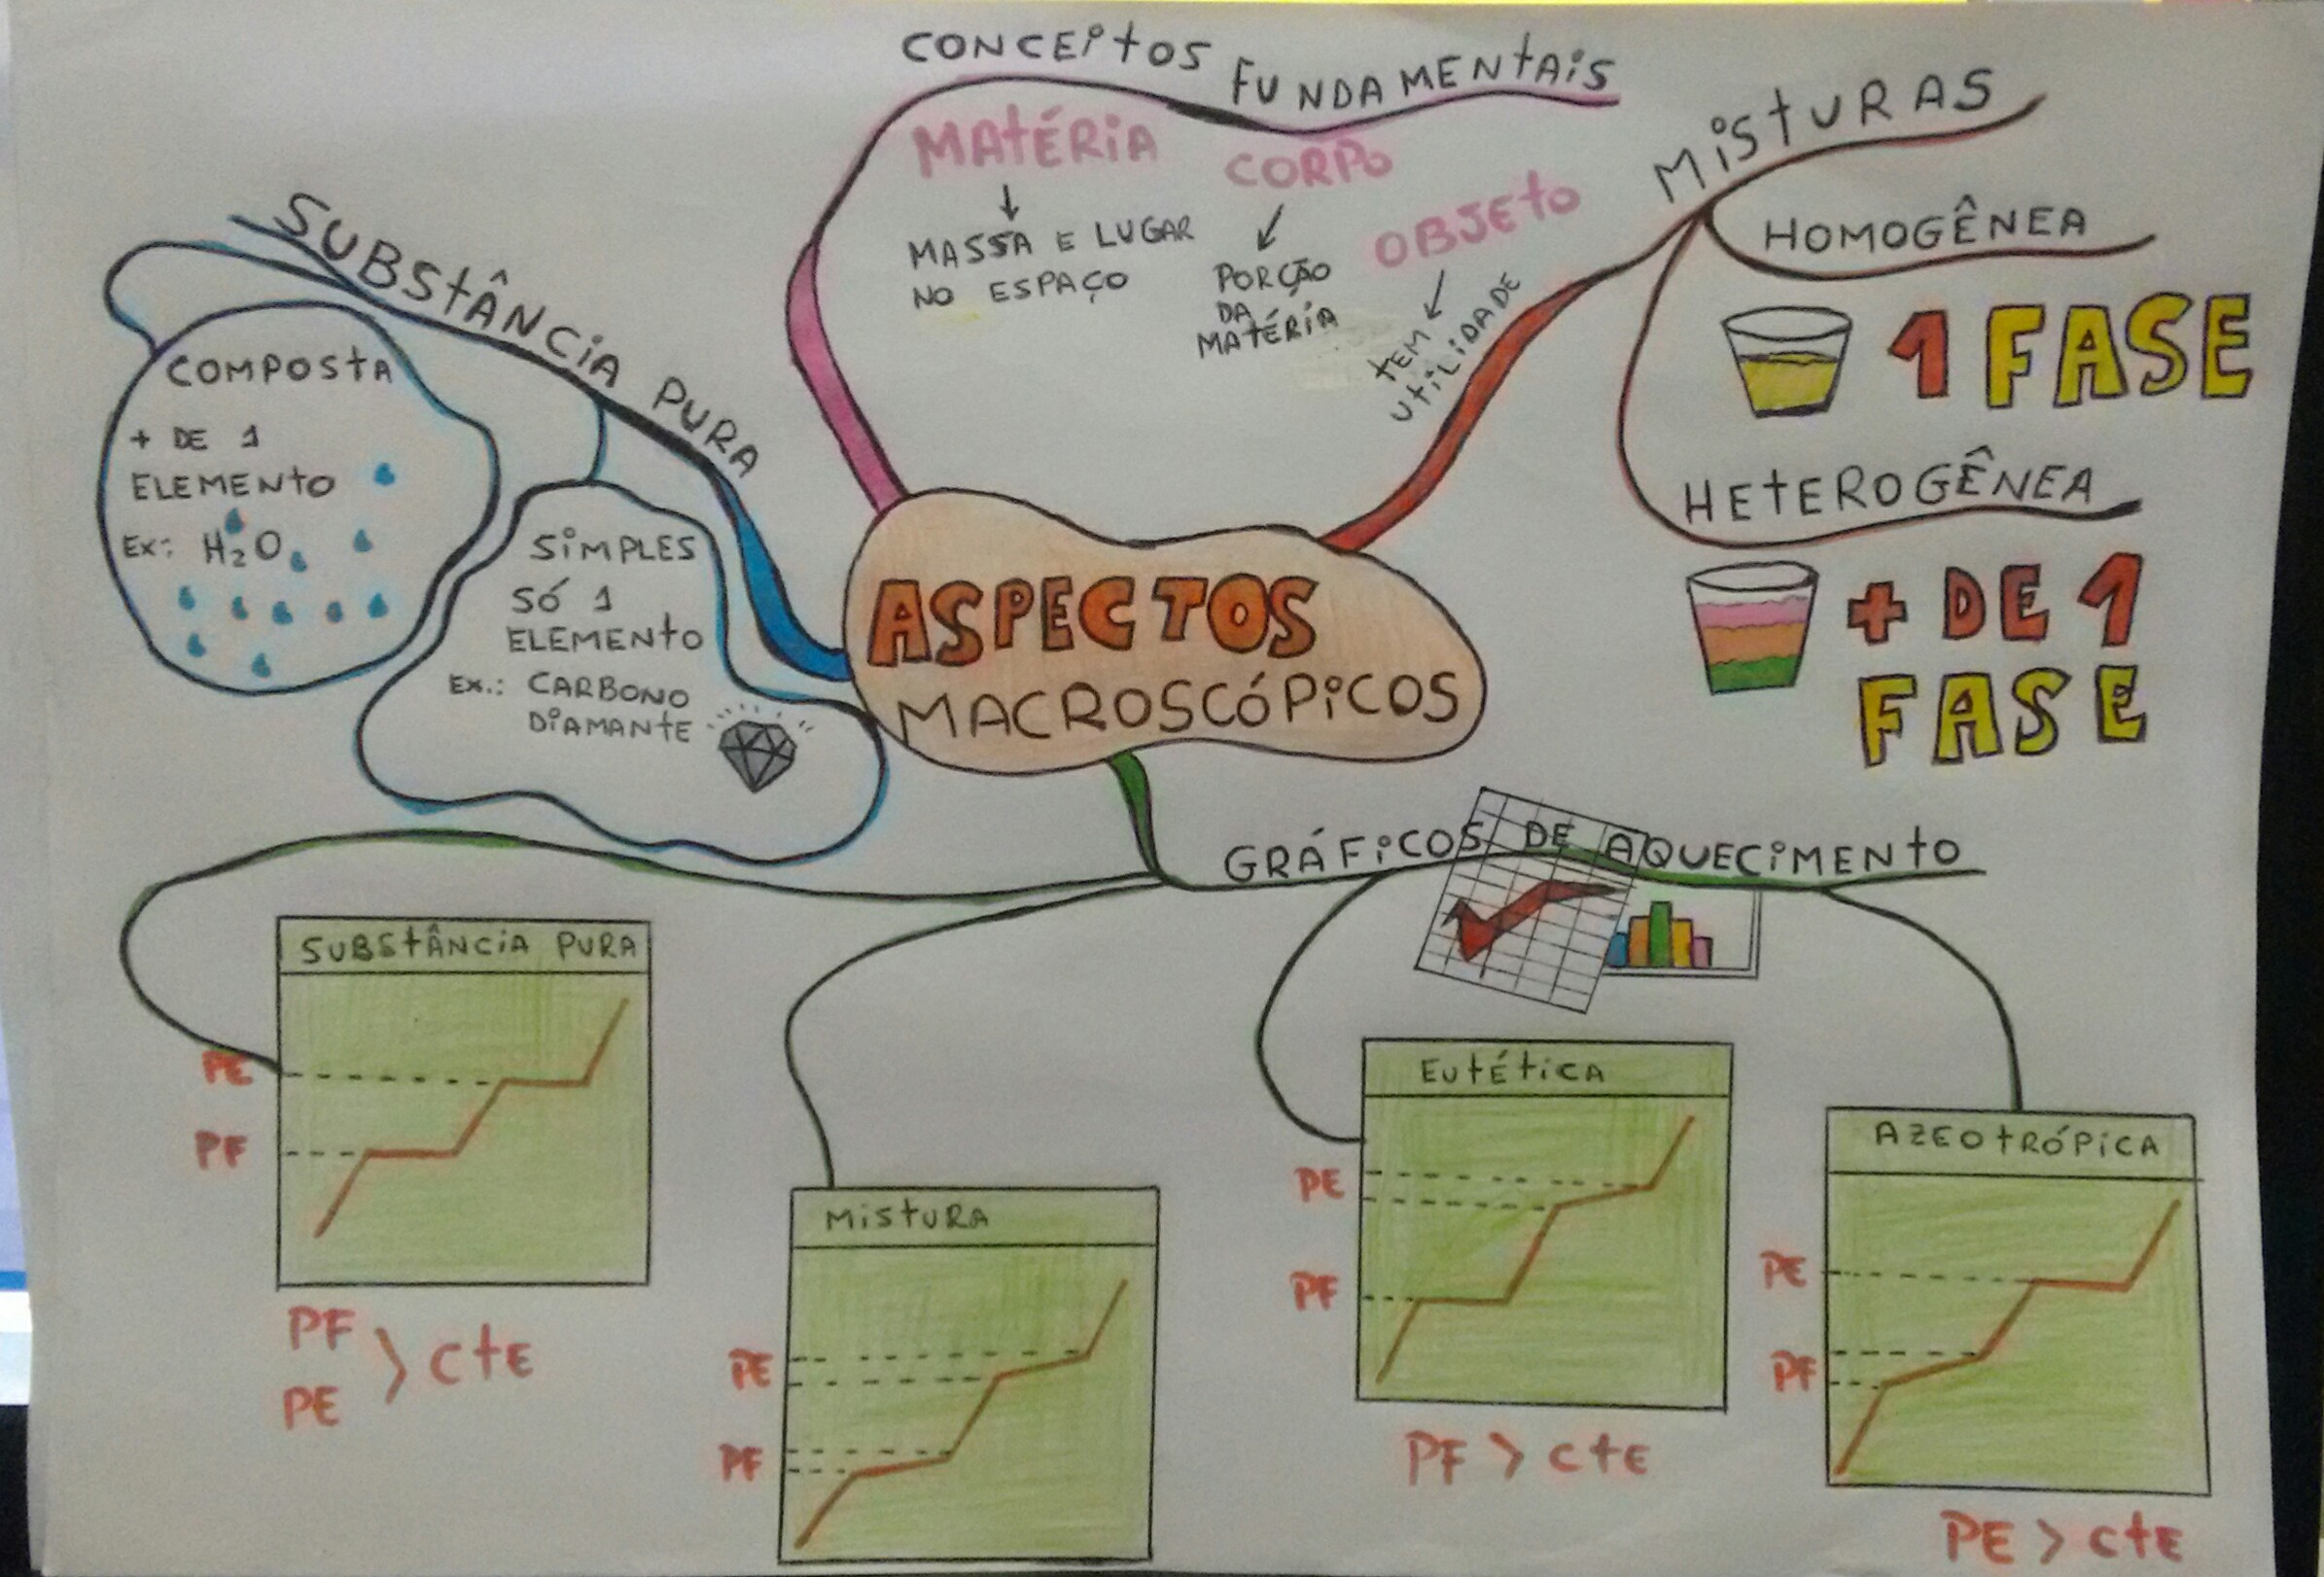 CONCEITOS FUNDAMENTAIS
MATÉRIA
MASSA E LUGAR
NO ESPAÇO
CORPO
PORÇÃO
DA
MATÉRIA
OBJETO
TEM
UTILIDADE
MISTURAS
HOMOGÊNEA
1 FASE
HETEROGÊNEA
+ DE 1
FASE
SUBSTÂNCIA PURA
COMPOSTA
+ DE 1
ELEMENTO
EX: H₂O
SIMPLES
SÓ 1
ELEMENTO
EX.: CARBONO
DIAMANTE
ASPECTOS
MACROSCÓPICOS
GRÁFICOS DE AQUECIMENTO
SUBSTÂNCIA PURA
PE
PF
PF
PE
> CTE
MISTURA
PE
PF
EUTÉTICA
PE
PF
PF > CTE
AZEOTRÓPICA
PE
PF
PE > CTE